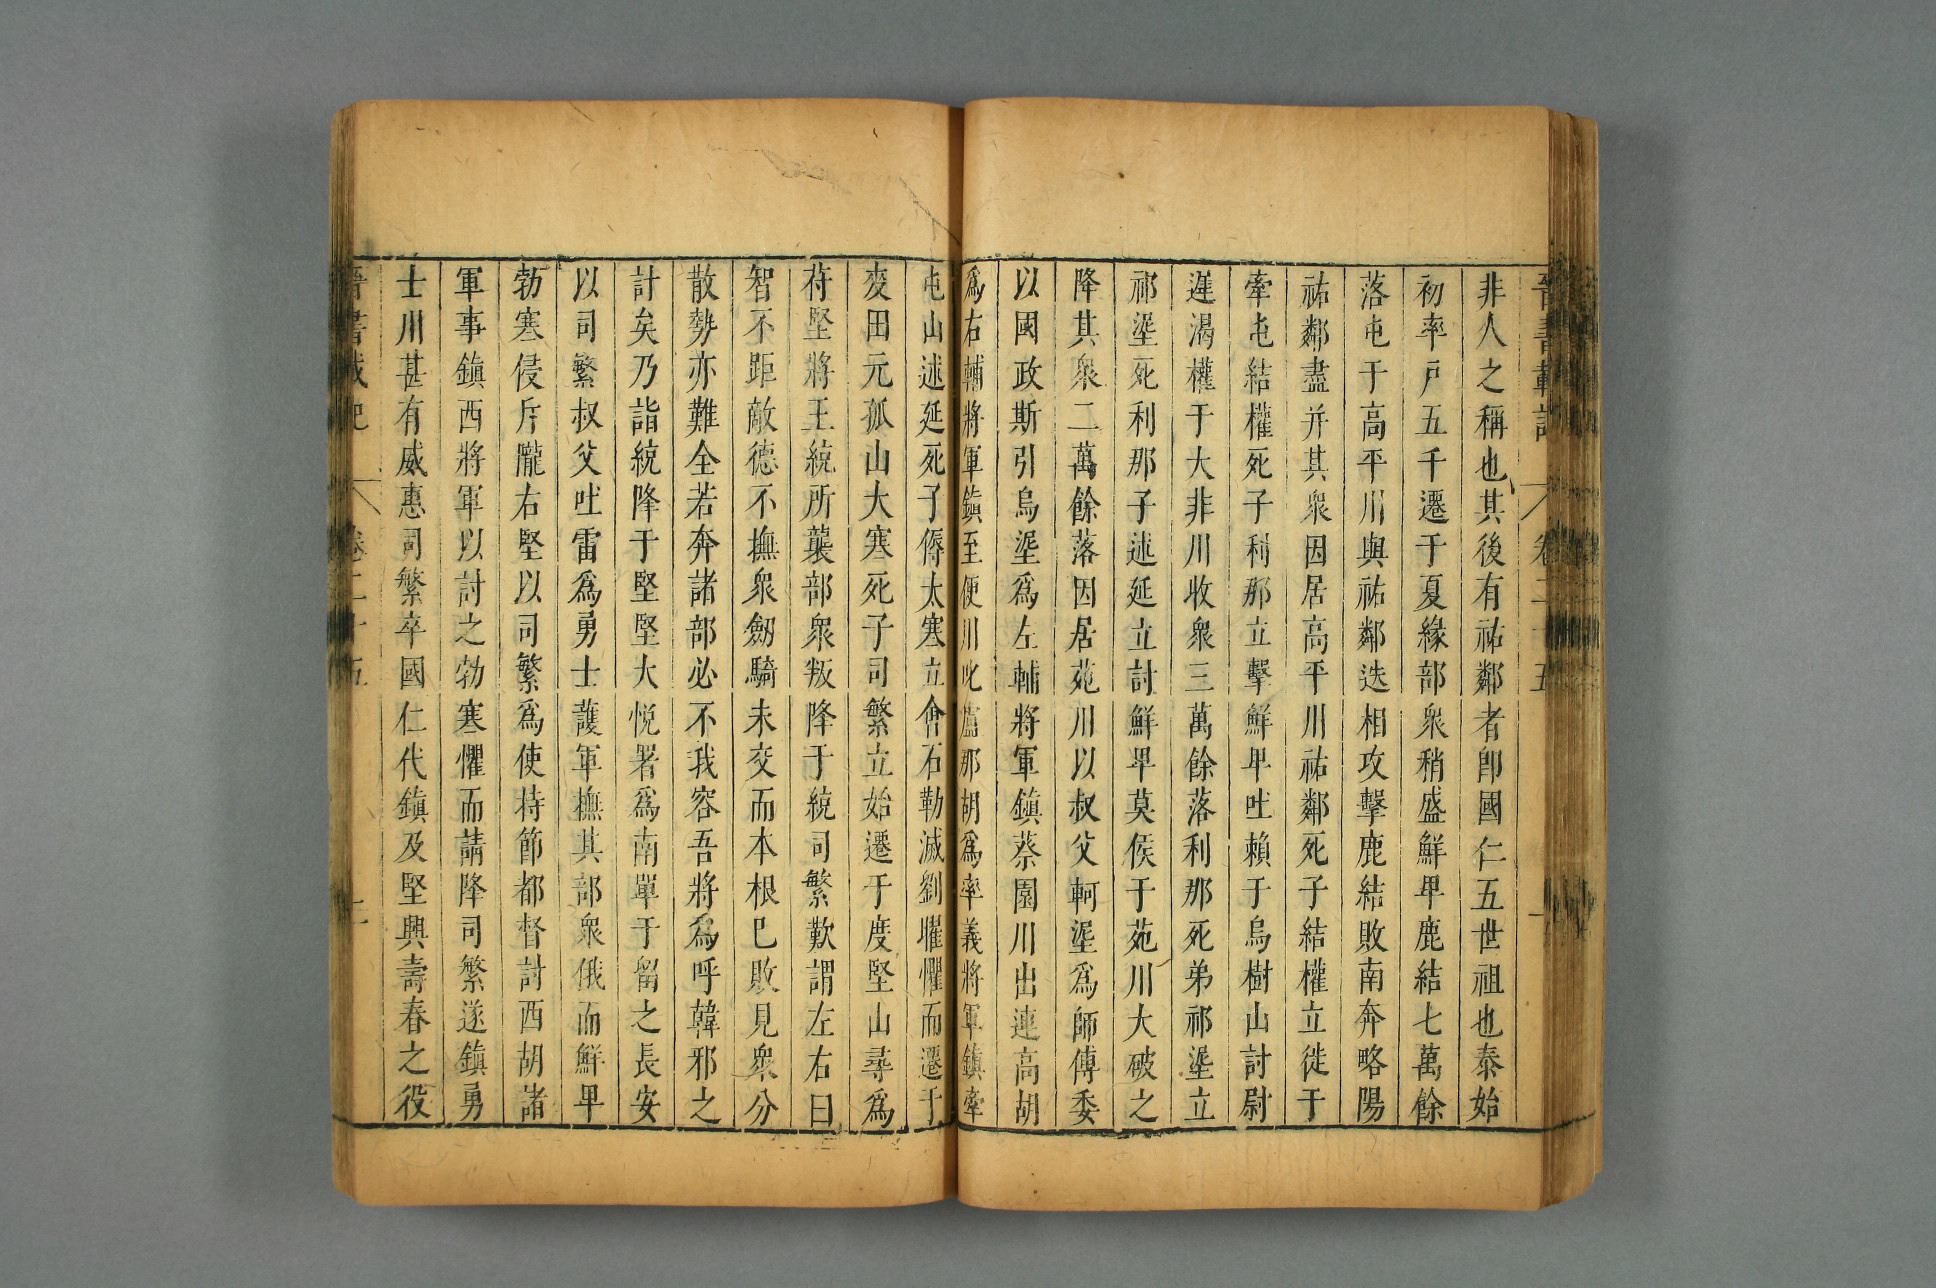 晉書載記 卷二十五 一
非人之稱也其後有祐鄰者卽國仁五世祖也泰始
初率戸五千遷于夏緣部衆稍盛鮮卑鹿結七萬餘
落屯于高平川與祐鄰迭相攻擊鹿結敗南奔略陽
祐鄰盡并其衆因居高平川祐鄰死子結權立徙于
牽屯結權死子利那立擊鮮卑吐賴于烏樹山討尉
遲渴權于大非川收衆三萬餘落利那死弟祁埿立
祁埿死利那子述延立討鮮卑莫侯于苑川大破之
降其衆二萬餘落因居苑川以叔父軻埿爲師傅委
以國政斯引烏埿爲左輔將軍鎮蔡園川出連高胡
爲右輔將軍鎮至便川叱盧那胡爲率義將軍鎮牽
屯山述延死子傉大寒立會石勒滅劉曜懼而遷于
麥田元孤山大寒死子司繁立始遷于度堅山尋爲
苻堅將王統所襲部衆叛降于統司繁歎謂左右曰
智不距敵德不撫衆劒騎未交而本根已敗見衆分
散勢亦難全若奔諸部必不我容吾將爲呼韓邪之
計矣乃詣統降于堅堅大悅署爲南單于留之長安
以司繁叔父吐雷爲勇士護軍撫其部衆俄而鮮卑
勃寒侵斥隴右堅以司繁爲使持節都督討西胡諸
軍事鎮西將軍以討之勃寒懼而請降司繁遂鎮勇
士川甚有威惠司繁卒國仁代鎮及堅興壽春之役
晉書載記 卷二十五